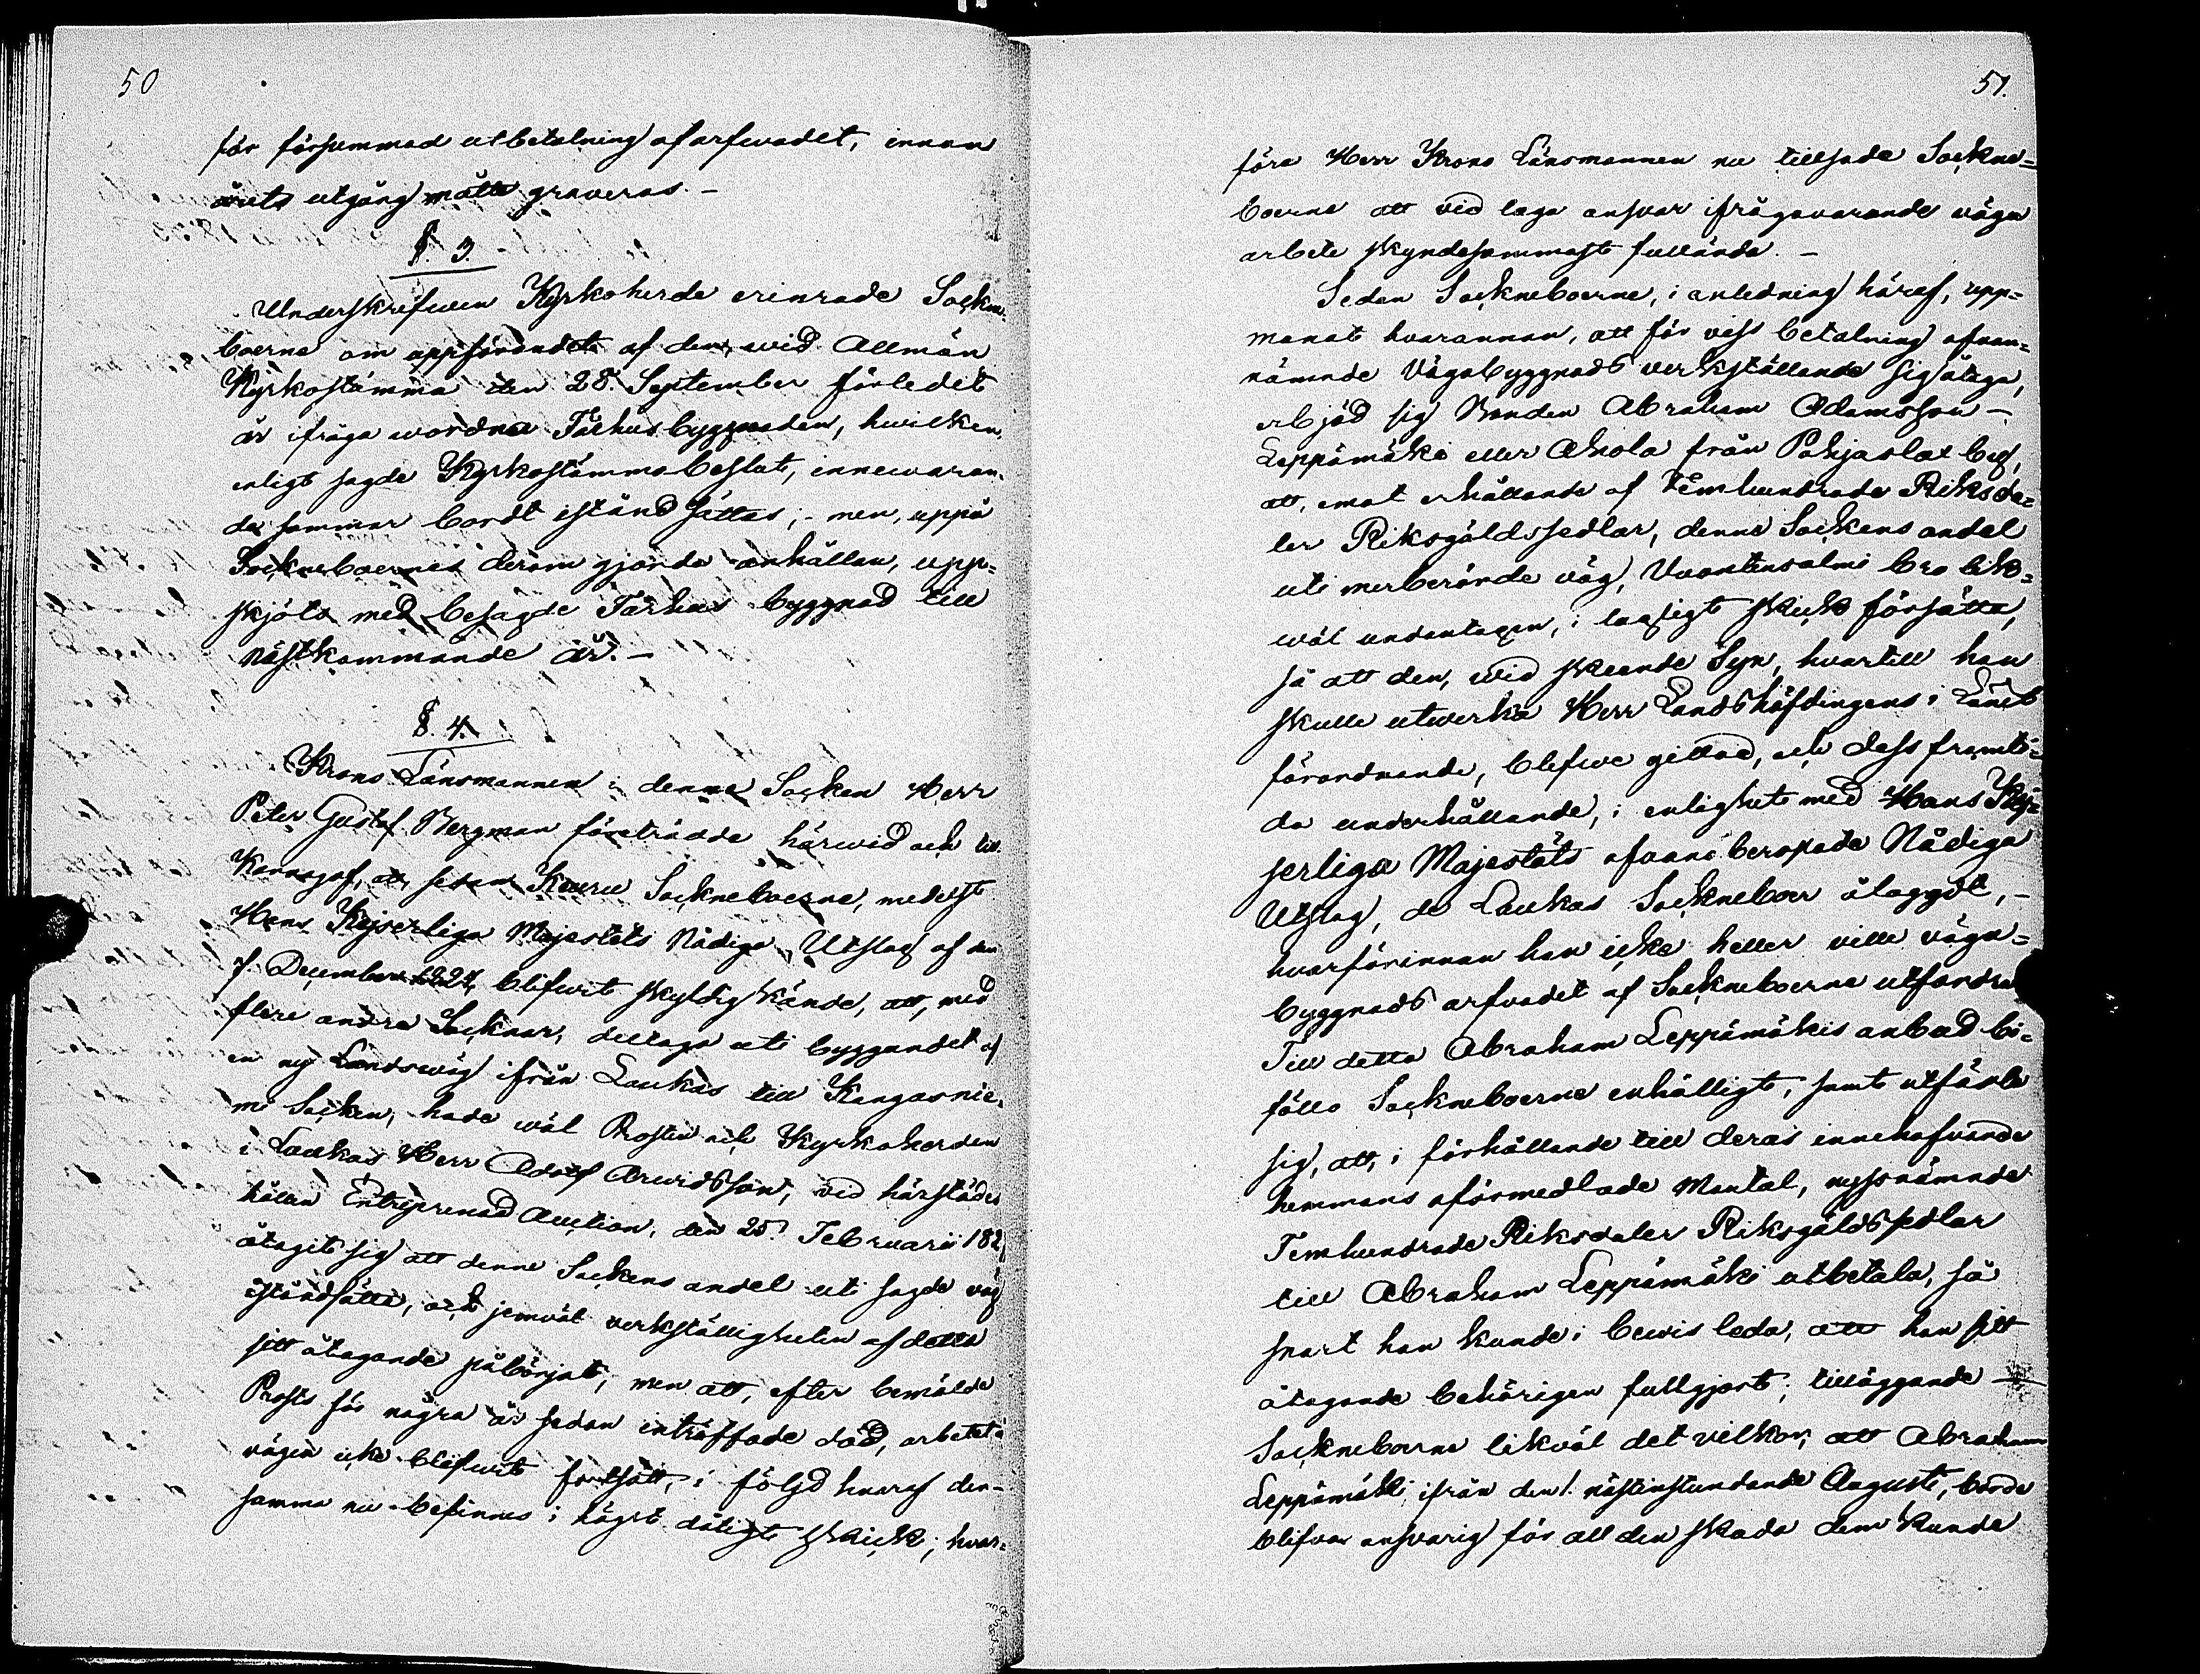 50
för försummad utbetalning af arfwodet, innan
årets utgång måtte graveras. -
§. 3.
Underskrefwen Kyrkoherde erinrade Sockne-
boerne om uppförandet af den, wid Allmän
Kyrkostämma den 28. September förledet
år ifråga wordne Fårhus byggnaden, hwilken,
enligt sagde Kyrkostämmobeslut, innewaran-
de sommar bordt iständ sättas; - men, uppå
Sockneboernes derom gjorde anhållan, upp=
skjöts med besagde Fårhus byggnad till
nästkommande år. -
§. 4.
Krono Länsmannen i denne Socken Herr
Peter Gustaf Bergman företrädde härwid och till
Kännagaf, att, sedan Keuru Sockneboerne, medelst
Hans Kejserliga Majestäts Nådiga Utslag af den
7. December 1824, blifwit skyldig kände, att, med
flere andre Socknar, deltaga uti byggandet af
en ny Landswäg ifrån Laukas till Kangasnie-
mi Socken, hade wäl Prosten och Kyrkoherden
i Laukas Herr Adolf Arwidsson, vid härstädes
hållen Entreprenad Auction, den 25. Februarii 182
åtagit sig att denne Sockens andel uti sagde väg
iståndsätta, och jemväl verkställigheten af detta
sitt åtagande påbörjat; men att, efter bemälde
Prosts för några år sedan inträffade död, arbetet å
vägen icke blifwit fortsatt, i följd hvaraf den-
samma nu befinnes i högst dåligt skick; hvar=
51.
före Herr Krono Länsmannen nu tillsade Sockne=
boerne att vid laga answar ifrågavarande vägar
arbete skyndesammast fullända. -
Sedan Sockneboerne, i anledning häraf, upp=
manat hvarannan, att för viss betalning ofvan=
nämnde Vägabyggnads verkställande sig åtaga,
erbjöd sig Bonden Abraham Adamsson -
Leppämäki eller Ahola från Pohjaslax by,
att, emot erhållande af Femhundrade Riksda=
ler Riksgäldssedlar, denne Sockens andel
uti merberörde väg, Vuontensalmi bro lik=
wäl undantagen, i lagligt skick försätta,
så att den, wid skeende Syn, hvartill han
skulle utwerka Herr Landshöfdingens i Länet
förordnande, blefwe gillad, och dess framti=
da underhållande, i enlighet med Hans Kej=
serliga Majestäts ofvanåberopade Nådiga
Utslag, de Laukas Sockneboer ålaggdt, -
hvarförinnan han icke heller ville väga=
byggnads arfvodet af Sockneboerne utfordra.
Till detta Abraham Leppämäkis anbud bi=
föllo Sockneboerne enhälligt, samt utfäste
sig, att, i förhållande till deras innehafvande
hemmans oförmedlade Mantal, nyssnämnde
Femhundrade Riksdaler Riksgäldssedlar
till Abraham Leppämäki utbetala, så
snart han kunde i bewis leda, att han sitt
åtagande behörigen fullgjort; tilläggande
Sockneboerne likväl det vilkor, att Abraham
Leppämäki, ifrån den 1. nästinstundande Augusti, borde
blifva ansvarig för all den skada dem kunde